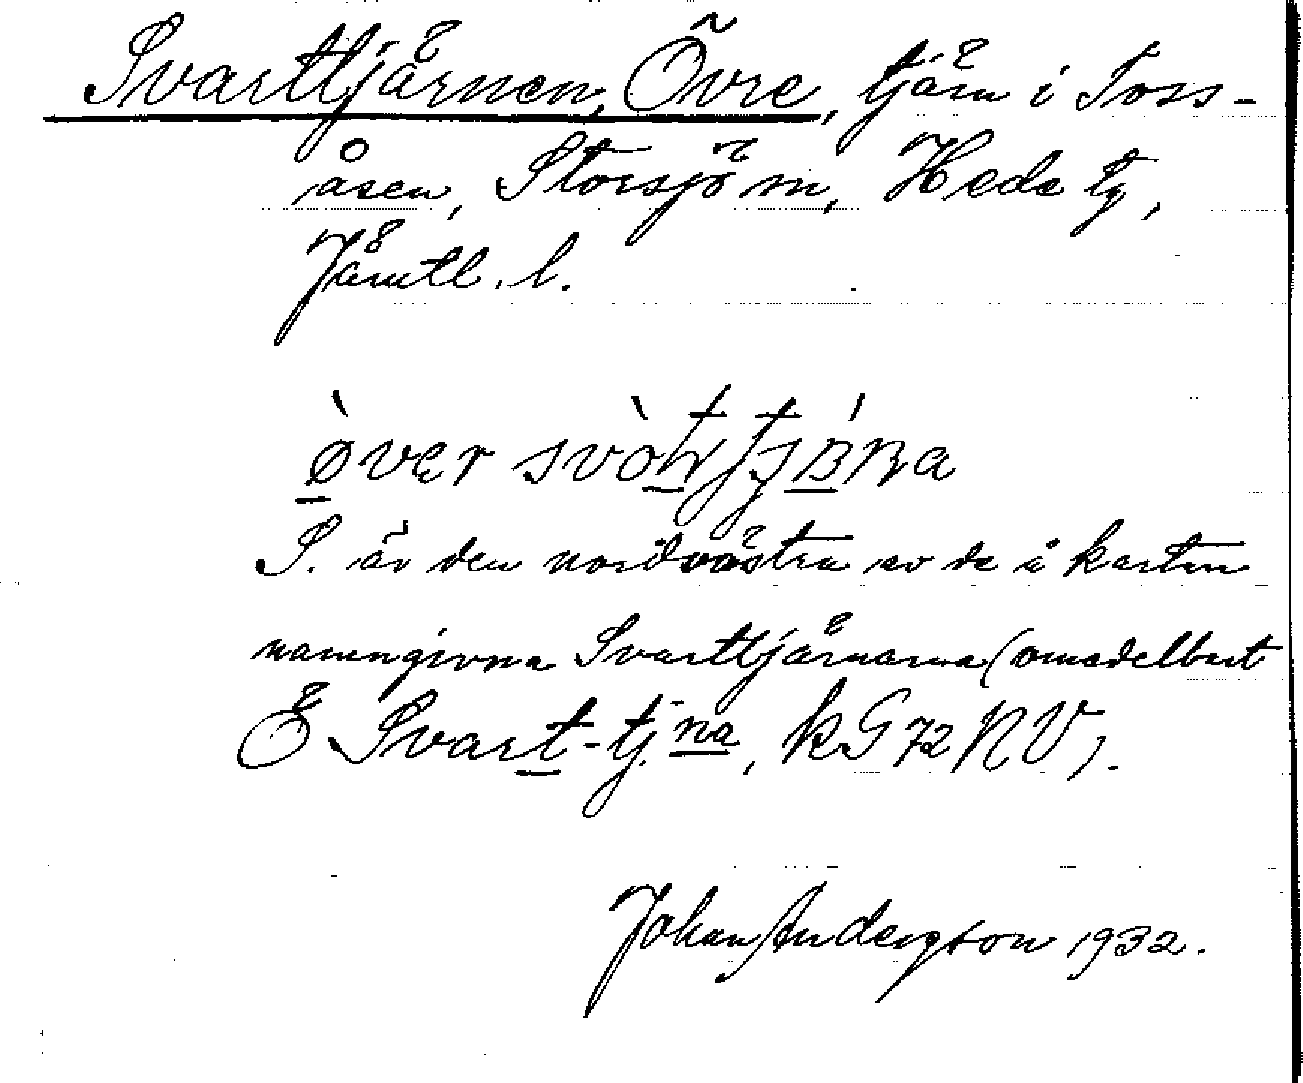 Svarttjärnen, Övre, tjärn i Toss-
åsen, Storsjö sn, Hede tg,
Jämtl. l.
S. är den nordvästra av de å kartan
namngivna Svarttjärnarna (omedelbart
E Svart-tj.na, kG72NV).
Johan Anderzon 1932.